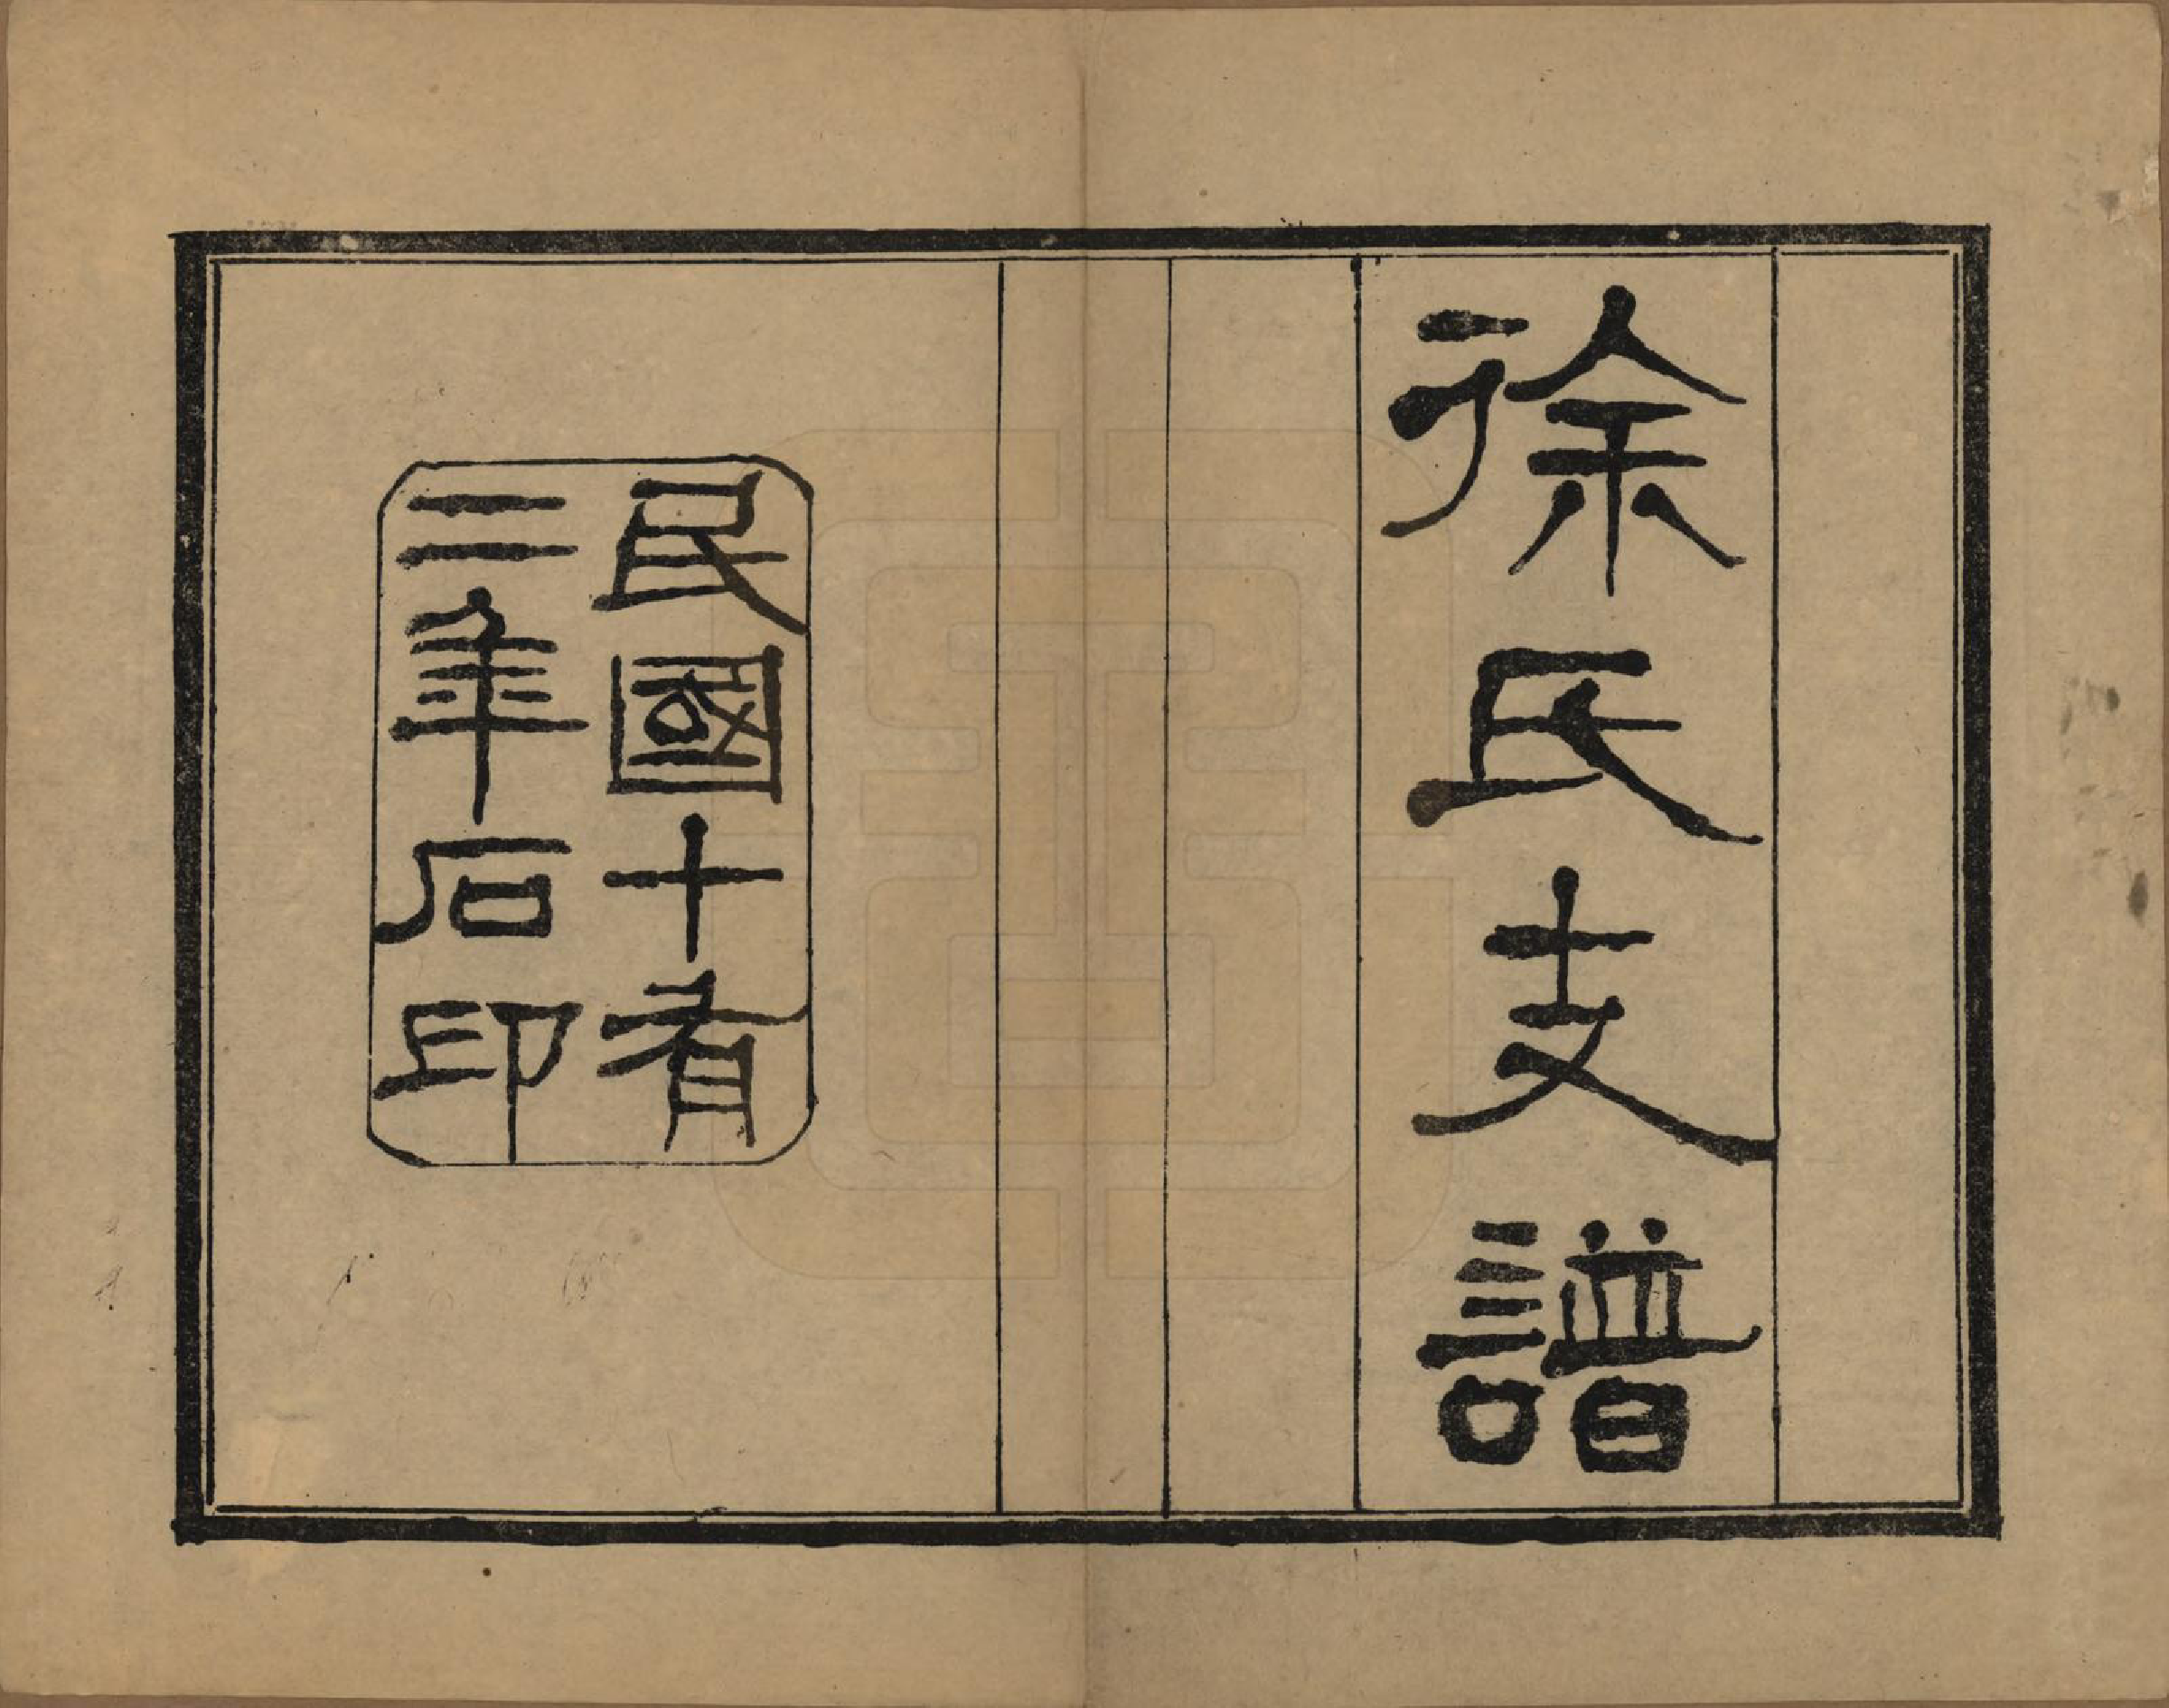 徐氏支譜
民國十有
二年石印